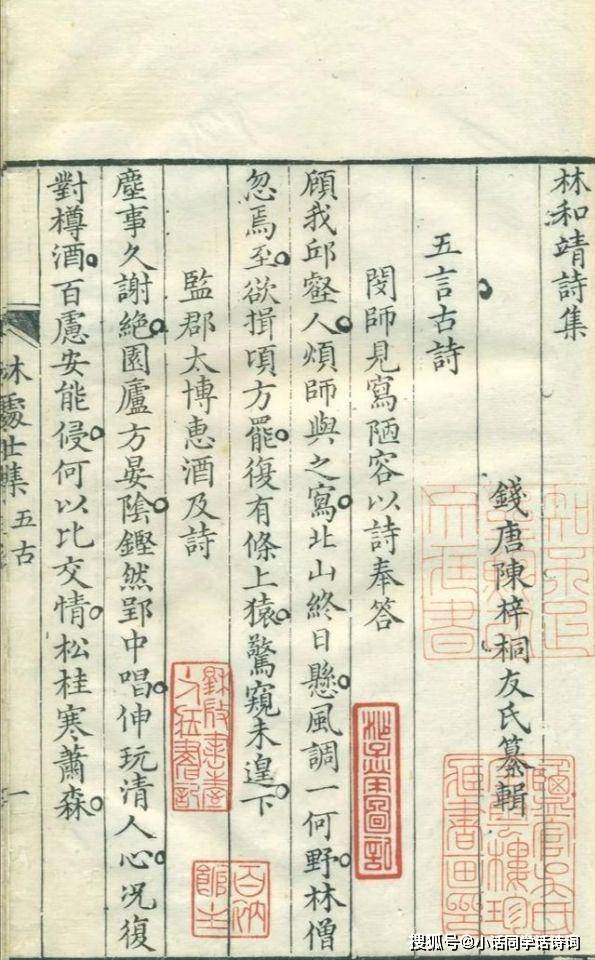 林和靖詩集
錢唐陳梓桐友氏纂輯
五言古詩
閔師見寫陋容以詩奉答
顧我邱壑人。煩師與之寫。北山終日懸。風調一何野。林僧
忽焉至。欲揖頃方罷。復有條上猿。驚窺未遑下。
監郡太博惠酒及詩
塵事久謝絕。園廬方晏陰。鏗然郢中唱。伸玩清人心。況復
對樽酒。百慮安能侵。何以比交情。松桂寒蕭森。
林處士集 五古
一
百衲
館主
搜狐号@小话同学话诗词